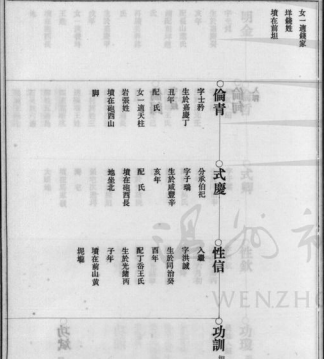 女一適錢家
垟錢姓
墳在前垣
倫青
字士黔
生於嘉慶丁
丑年
配 氏
女一適天柱
岩張姓
墳在砲西山
腳
式慶
分承伯祀
字子瑞
生於咸豐辛
亥年
配 氏
墳在砲西長
地坐北
性信
入繼
字洪誠
生於同治癸
酉年
配丁岙王氏
生於光緒丙
子年
墳在前山黃
坭壠
功訓
WENZHO